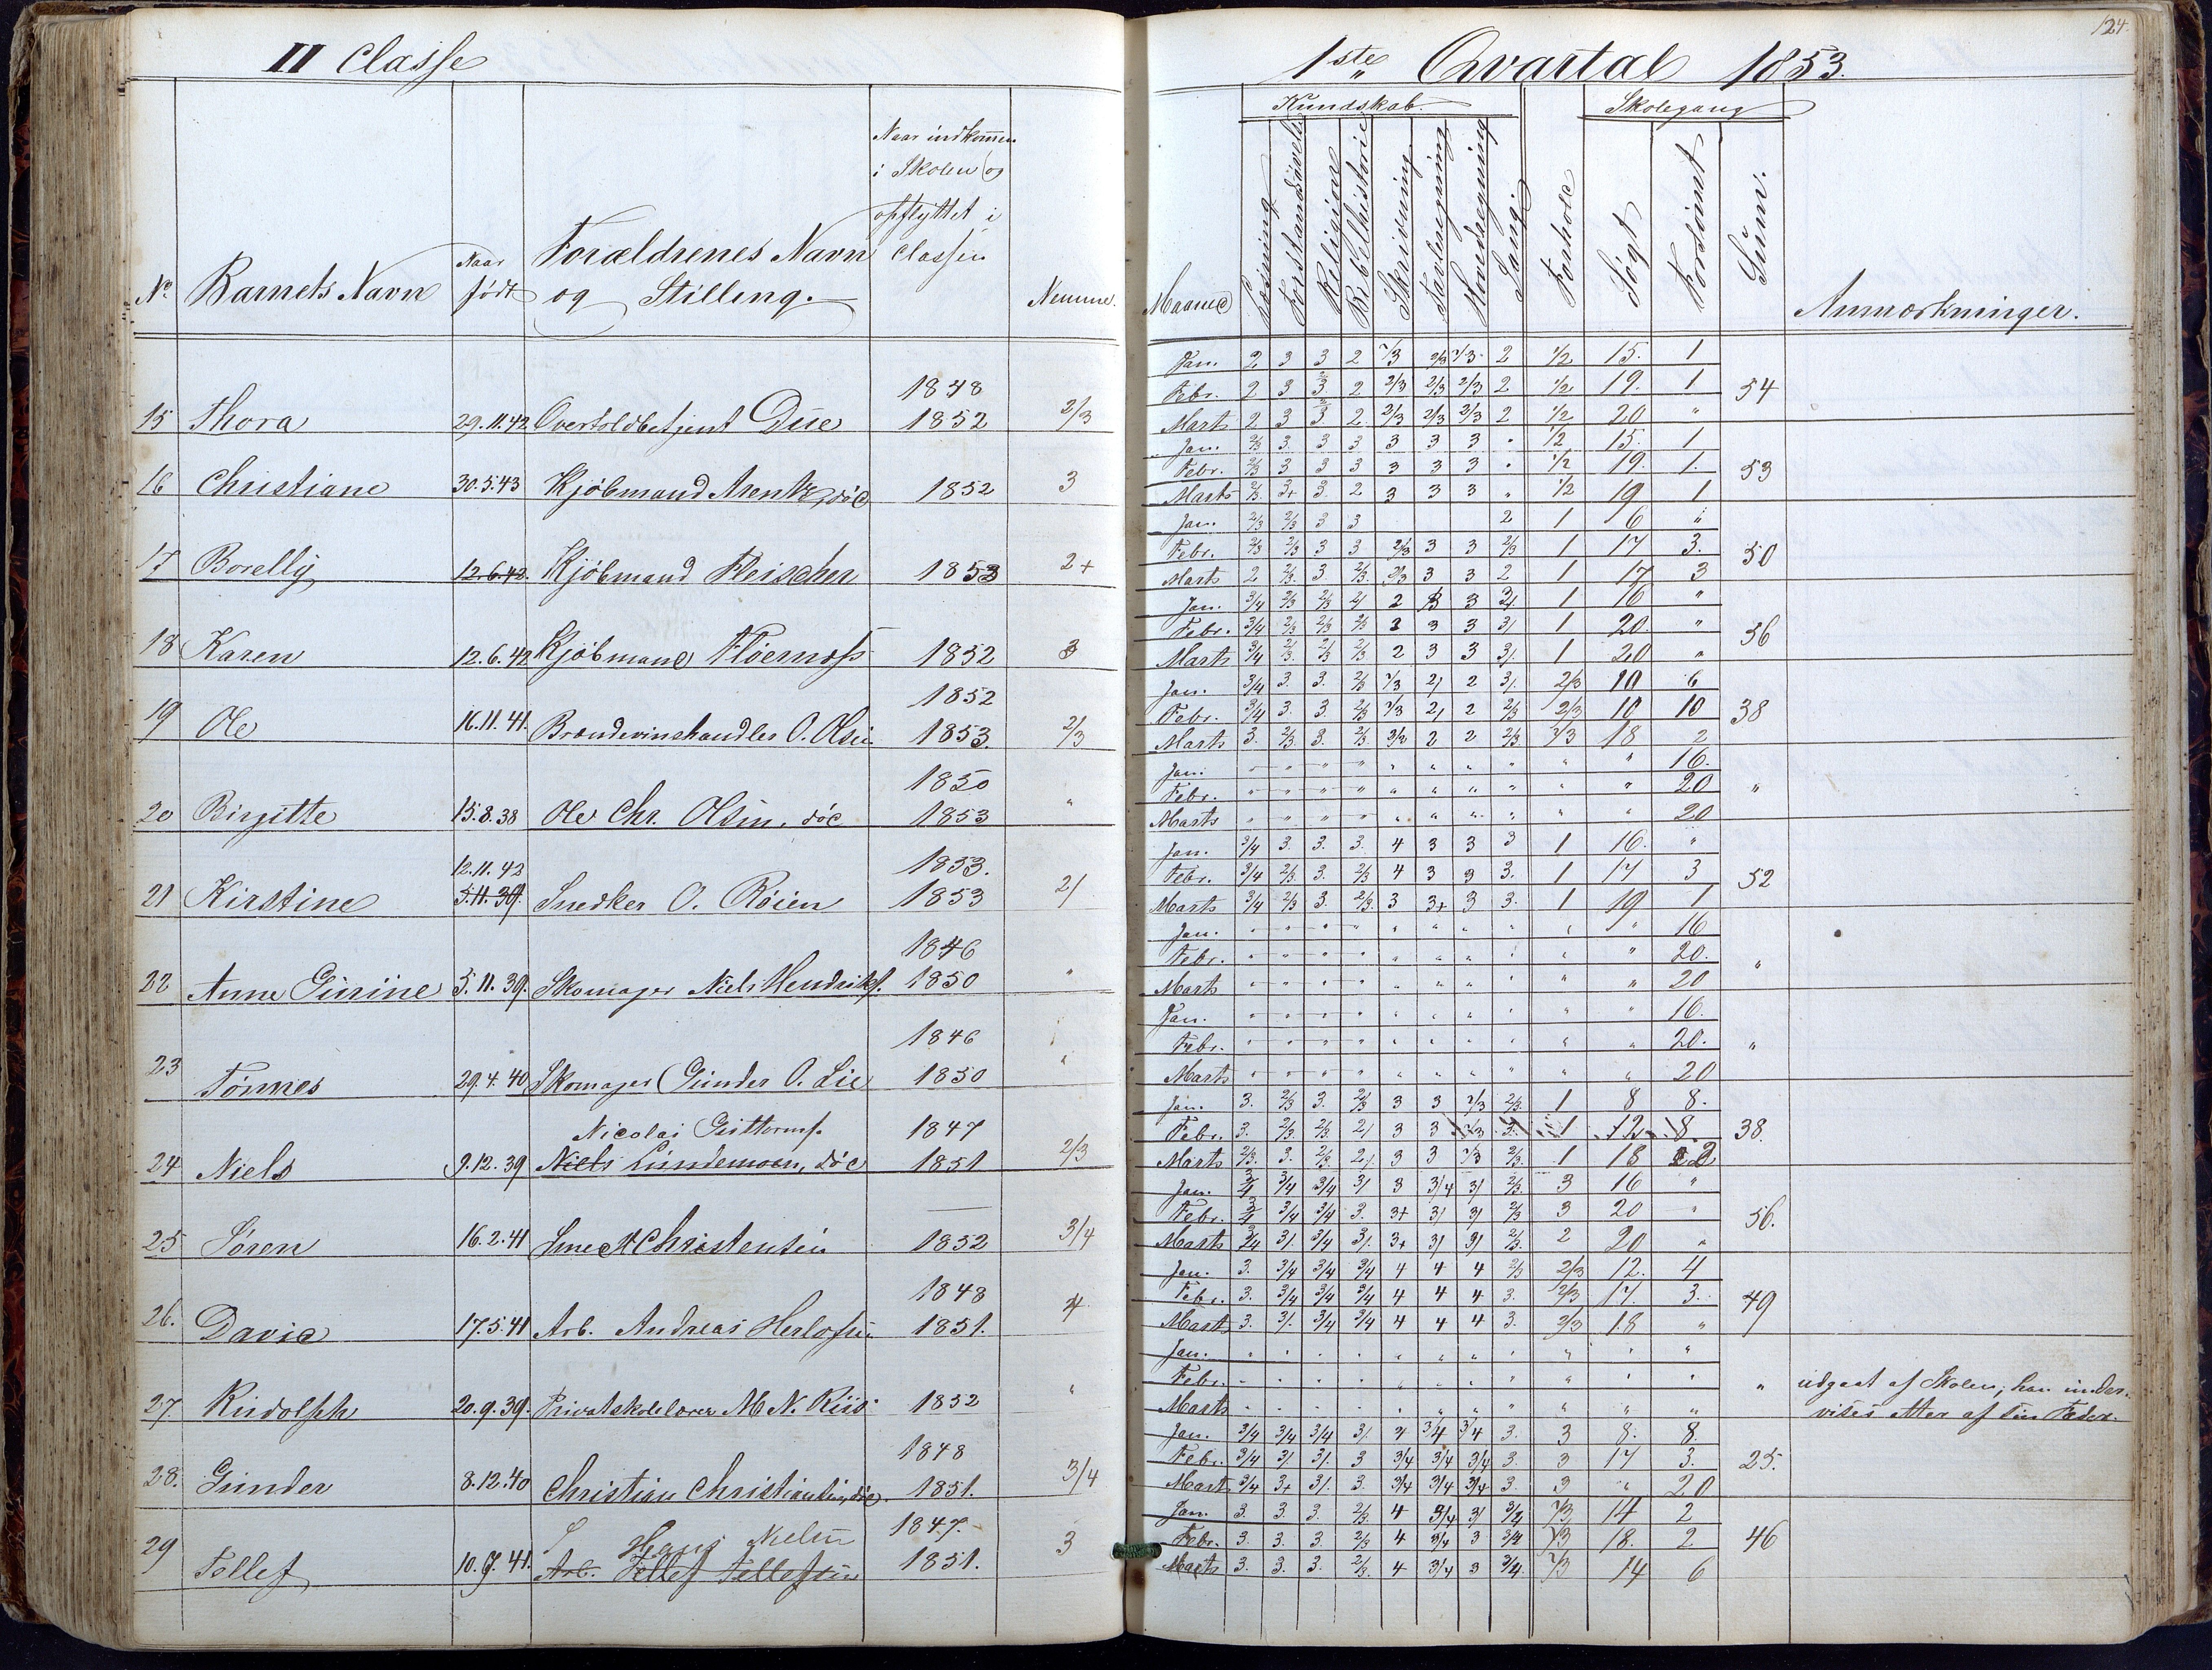 124.
II Classe
1ste Qvartal 1853.
Kundskab. Skolegang
No. Barnets Navn Naar født Forældrenes Navn og Stilling. Naar indkommen i Skolen og opflyttet i Classen Nemme.
Maaned Læsning Forstandsøvelse Religion Bibelhistorie Skrivning Tavleregning Hovedregning Sang. Forhold Søgt Forsømt Sum. Anmærkninger.
15 Thora 29.11.42 Overtoldbetjent Due 1848 1852 2/3
Jan. 2 3 3 2 2/3 2/3 2/3 2 1/2 15. 1
Febr. 2 3 3 2 2/3 2/3 2/3 2 1/2 19. 1 54
Marts 2 3 3 2 2/3 2/3 2/3 2 1/2 20 "
16 Christiane 30.5.43 Kjøbmand Arentz, død 1852 3
Jan. 2/3 3. 3 3 3 3 3 " 1/2 15. 1
Febr. 2/3 3 3 3 3 3 3 " 1/2 19. 1. 53
Marts 2/3. 3+ 3. 2 3 3 3 " 1/2 19 1
17 Borelly 12.6.42 Kjøbmand Fleischer 1853 2+
Jan. 2/3 2/3 3 3 2 1 6 "
Febr. 2/3 2/3 3 3 2/3 3 3 2/3 1 17 3. 50
Marts 2 2/3. 3. 2/3. 2/3 3 3 2 1 17 3
18 Karen 12.6.42 Kjøbmand 1852 3
Jan. 3/4 2/3 2/3 2/ 2 3 3 3/. 1 16 "
Febr. 3/4 2/3 2/3 2/3 2 3 3 3/ 1 20. " 56
Marts 3/4 2/3. 2/3 2/3 2 3 3 3/. 1 20 "
19 Ole 16.11.41. Brændevinshandler O. Olsen 1852 1853. 2/3
Jan. 3/4 3. 3. 2/3 2/3 2/ 2 3/. 2/3 10 6
Febr. 3/4 3 3. 2/3 2/3 2/ 2 2/3 2/3 10 10 38
Marts 3. 2/3 3. 2/3. 2/3 2 2 2/3 2/3 18 2
20 Birgitte 15.8.38 Ole Chr. Olsen, død 1850 1853 "
Jan. " " " " " " " " " " 16.
Febr. " " " " " " " " " " 20 "
Marts " " " " " " " " " " 20
21 Kirstine 12.11.42 5.11.39. Snedker O. Røien 1853. 1853 2/
Jan. 3/4 3. 3. 3. 4 3 3 3 1 16. "
Febr. 3/4 2/3. 3. 2/3 4 3 3 3. 1 17 3 52
Marts 3/4 2/3 3. 2/3. 3 3+ 3 3. 1 19 1
22 Anne Gurine 5.11.39. Skomager Niels Hendriks. 1846 1850 "
Jan. " " " " " " " " " " 16
Febr. " " " " " " " " " " 20. "
Marts " " " " " " " " " " 20
23 Tønnes 29.4.40 Skomager Gunder O. Lie 1846 1850 "
Jan. " " " " " " " " " " 16.
Febr. " " " " " " " " " " 20. "
Marts " " " " " " " " " " 20
24 Niels 9.12.39 Nicolai Guttorms. Niels Lundemoen, død 1847 1851 2/3
Jan. 3. 2/3 3. 2/3 3 3 2/3 2/3. 1 8 8.
Febr. 3. 2/3. 2/3. 2/ 3 3 2/3 3. 1 12 8 38.
Marts 2/3. 3. 2/3. 2/. 3 3 2/3 2/3. 1 18 2
25 Søren 16.2.41 Smed Christensen 1852 3/4
Jan. 3/4 3/4 3/4 3/ 3 3/4 3/ 2/3. 3 16 "
Febr. 3/4 3/4 3/4 3. 3+ 3/ 3/ 2/3 3 20 " 56.
Marts 3/4 3/. 3/4 3/. 3+ 3/ 3/ 2/3. 2 20 "
26. David 17.5.41 Arb. Andreas Herlofsen 1848 1851. 4
Jan. 3. 3/4 3/4 3/4 4 4 4 2/3 2/3 12. 4
Febr. 3. 3/4 3/4 3/4 4 4 4 3. 2/3 17. 3. 49
Marts 3. 3/. 3/4 3/4 4 4 4 3. 2/3 18 "
27. Rudolph 20.9.39. Privatskolelærer M N. Riis 1852 "
Jan. " " " " " " " " " " "
Febr. " " " " " " " " " " " " udgaat af Skolen; han under-
Marts " " " " " " " " " " " vises atter af sin Fader.
28. Gunder 8.12.40 Christian Christiansen, død. 1848 1851. 3/4
Jan. 3/4 3/4 3/4 3/. 4 3/4 3/4 3. 3 8. 8.
Febr. 3/4 3/ 3/. 3 3/4 3/4 3/4 3. 3 17 3. 25.
Marts 3/4 3+ 3/. 3. 3/4 3/4 3/4 3. 3 " 20
29 Tollef 10.9.41. Hans Nielsen Arb. Tellef Tellefsen 1847. 1851. 3
Jan. 3. 3. 3. 2/3. 4 3/4 3/ 3/4 2/3 14 2
Febr. 3. 3. 3. 2/3 4 3/4 3 3/4 2/3 18. 2 46
Marts 3. 3. 3. 2/3. 4 3/4 3 3/4. 2/3 14 6